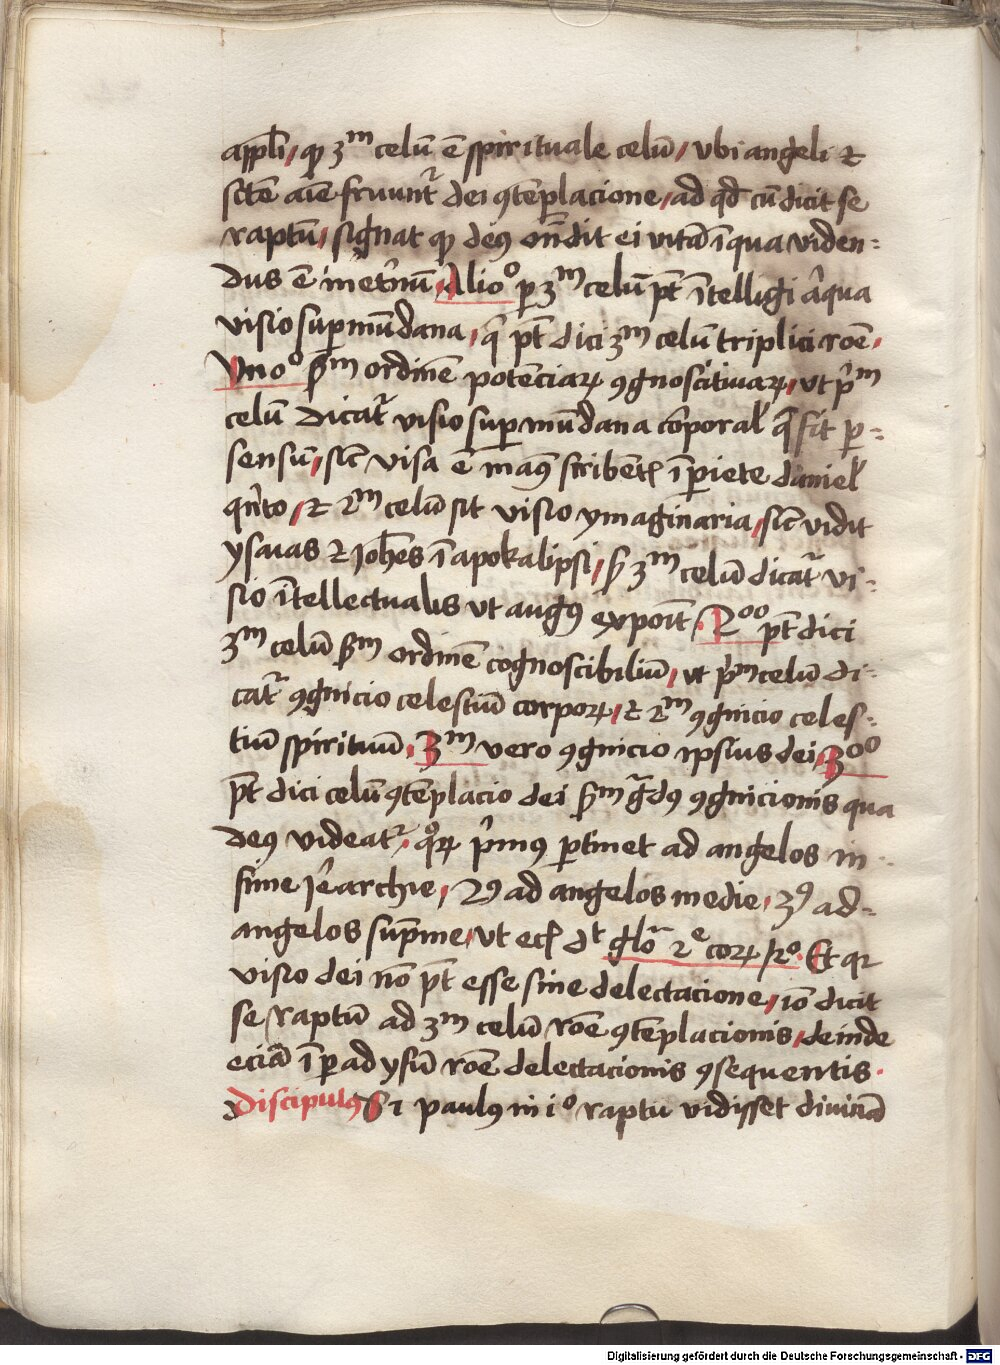 appl̄i / qꝫ 3ᵐ celū ē spirituale celū / vbi angeli ⁊
sctē aīe fruunt̄ dei ꝯtēplacione / ad qd̄ cū dicit se
raptū / signat qꝫ deꝰ on̄dit ei vitā ī qua viden⸗
dus ē in et̄nū / Alioº ꝑ 3ᵐ celū pt̄ ītelligi a̓qua
visio suꝑmūdana / q̄ pt̄ dici 3ᵐ celū triplici roē /
Vnoº ẜm ordinē potenciaꝝ ꝯgnoscitiuaꝝ / vt p̓ᵐ
celū dicat̄ visio suꝑmūdana corporal̓ q̄ fit ꝑ⸗
sensū / sic̄ visa ē manꝰ scribent̄ ī piete daniel̓
qn̓to / ⁊ 2ᵐ celū sit visio ymaginaria / sic̄ vidit
ysaias ⁊ Joh̄es ī apokalipsi / ꝫ 3ᵐ celū dicat̄ vi⸗
sio ītellectualis vt augꝰ exponit / 2ºº pt̄ dici
3ᵐ celū ẜm ordinē cognoscibiliū / vt p̓m celū di⸗
cat̄ ꝯgnicio celestiū corpoꝝ / ⁊ 2ᵐ ꝯgnicio celes⸗
tiū spirituū / 3ᵐ vero ꝯgnicio ipsius dei / 3ºº
pt̄ dici celū ꝯtēplacio dei ẜm g̓dꝰ ꝯgnicionis qua
deꝰ videat̄ / qͦꝝ p̓mꝰ ꝑtinet ad angelos in⸗
fime Jerarchie / 2ꝰ ad angelos medie / 3ꝰ ad⸗
angelos sup̄me / vt ec̄ dt̄ glo̓ 2ᵉ coꝝ 12º. Et qꝛ
visio dei nō pt̄ esse sine delectacione / iō dicit
se raptū ad 3ᵐ celū roē ꝯtēplacionis / deinde
eciā ī ꝑadysū roē delectacionis ꝯsequentis .
Discipulꝰ Si paulꝰ in iº raptu vidisset diuinā